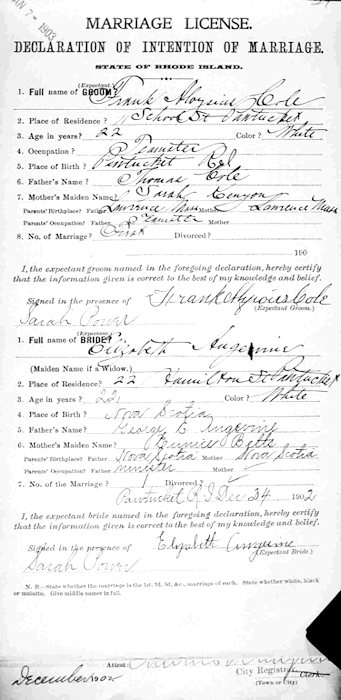 JAN 7 - 1903
MARRIAGE LICENSE.
DECLARATION OF INTENTION OF MARRIAGE.
STATE OF RHODE ISLAND.
(Expectant)
1. Full name of GROOM? Frank Aloysius Cole
2. Place of Residence? School St Pawtucket
3. Age in years? 22 Color? White
4. Occupation? Teamster
5. Place of Birth? Pawtucket R.I.
6. Father's Name? Thomas Cole
7. Mother's Maiden Name? Sarah Kenyon
Parents' Birthplace? Father Lawrence Mass Mother Lawrence Mass
Parents' Occupation? Father Teamster Mother
8. No. of Marriage? First Divorced?
190
I, the expectant groom named in the foregoing declaration, hereby certify
that the information given is correct to the best of my knowledge and belief.
Signed in the presence of Frank Aloysius Cole
Sarah Power (Expectant Groom.)
(Expectant)
1. Full name of BRIDE? Elizabeth Angevine
(Maiden Name if a Widow.)
2. Place of Residence? 22 Hamilton St Pawtucket
3. Age in years? 22 Color? White
4. Place of Birth? Nova Scotia
5. Father's Name? George E Angevine
6. Mother's Maiden Name? Eunice Betts
Parents' Birthplace? Father Nova Scotia Mother Nova Scotia
Parents' Occupation? Father minister Mother
7. No. of the Marriage? 1 Divorced?
Pawtucket R.I Dec 24 1902
I, the expectant bride named in the foregoing declaration, hereby certify
that the information given is correct to the best of my knowledge and belief.
Signed in the presence of Elizabeth Angevine
Sarah Power (Expectant Bride.)
N. B.—State whether the marriage is the 1st, 2d, 3d, &c., marriage of each. State whether white, black
or mulatto. Give middle names in full.
Attest
City Registrar Clerk.
(Town or City)
December 1902